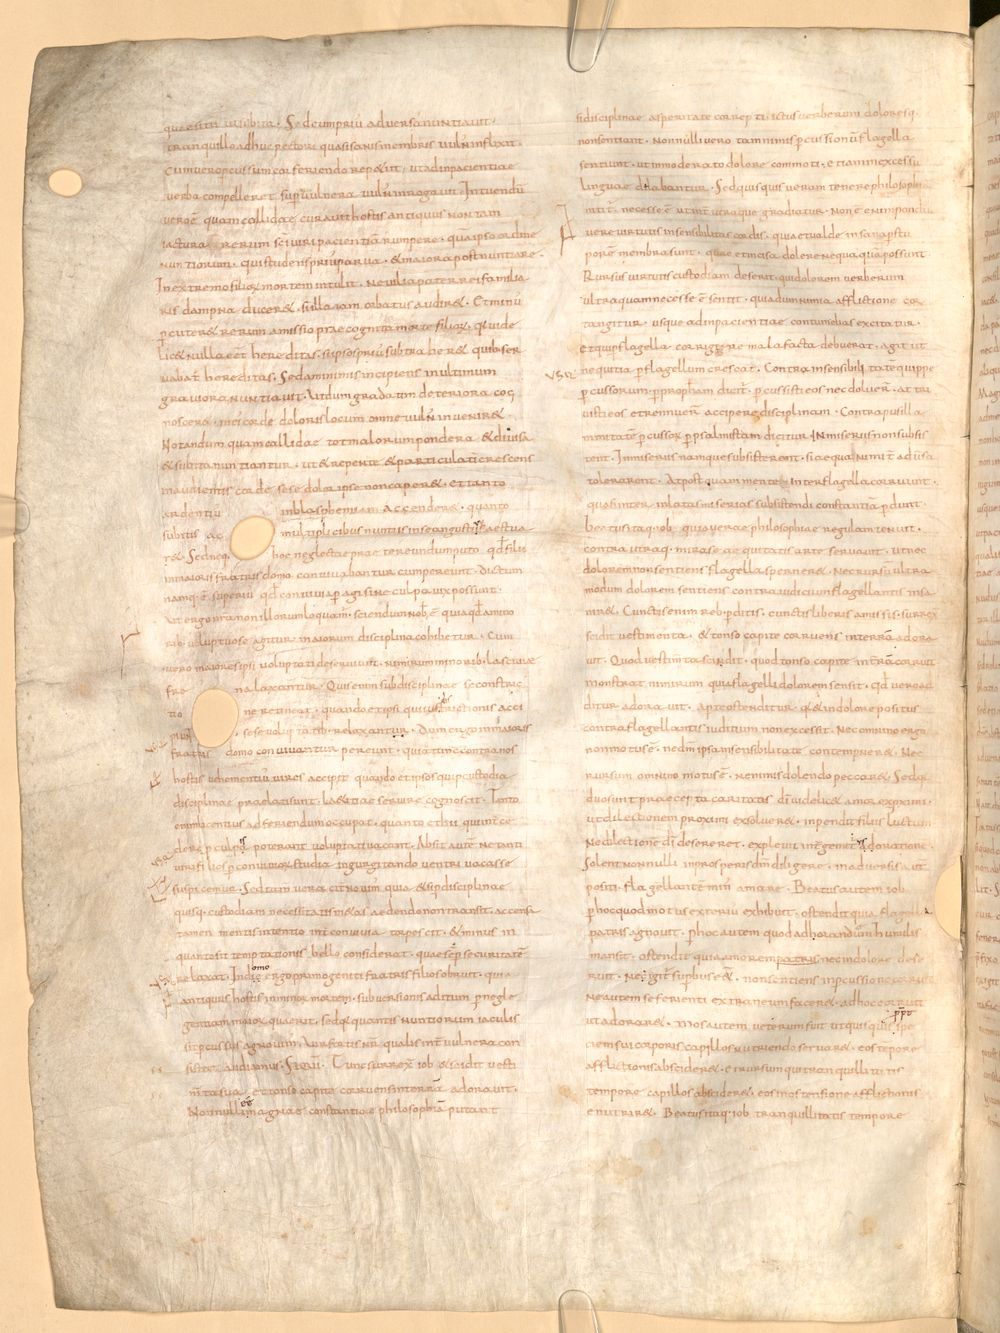 quaesitu uisibita. Sed cum prius aduersa nuntiauit.
tranquillo adhuc pectori quasi sanis membris uuln inflixit.
Cum uero percussum cor feriendo repetiit, ut ad inpacientiae
verba compelleret super uulnera uuln inrogauit. Intuendū
vero ē quam callidae curauit hostis antiquus non tam
iactura rerum sc̄i uiri pacientiā rumpere. quā ipso ordine
nuntiorum. qui studens prius parua. & maiora post nuntiare.
In extremo filioꝝ mortem intulit. Ne uilia pater rei familia
ris dampna duceret, si illa iam orbatus audir&. Et minus
percuter& rerum amissio praecognita morte filioꝝ. q̄ uide
lic& nulla eēt hereditas. si ipsos prius subtraher& quib; ser
uabat̄ hereditas. Sed a minimis incipiens in ultimum
grauiora nuntiauit. Ut dum gradatim deteriora cog
nosceret. in ei corde doloris locum omne uuln inuenir&.
Notandum quam callidae tot malorum pondera & diuisa
& subita nuntiantur. ut & repente & particulati crescens
in audientis corde sese dolor ipse non caper&. et tanto
ardentiu in blasphemiam accender&. quanto
subitis ac multiplicibus nuntiis inse angustis aestua
r&. Sed neq; hoc neglectae praetereundum puto. qd̄ filii
in maioris fratris domo conuiuabantur cum perierunt. Dictum
namq; ē superiu qd̄ conuiuia peragi sine culpa uix possunt.
Ut ergo nra non illorum loquam̄. sciendum nob̄ ē quia qd̄ a mino
rib; uoluptuose agitur maiorum disciplina cohibetur. Cum
vero maiores ipsi uoluptati deseruiunt. nimirum minorib; lasciuiae
frena laxantur. Quis enim sub disciplinae se constric
tione retineat. quando et ipsi qui ius strictionis acci
piunt sese uoluptatib; relaxantur. Dum ergo in maioris
fratris domo conuiuantur pereunt. quia tunc contra nos
hostis uehementiu uires accipit quando et ipsos qui p custodia
disciplinae praelati sunt. laetitiae seruire cognoscit. Tanto
enim licentius ad feriendum occupat. quanto et hii qui int̄ce
dere p culpis poterant uoluptati uacant. Absit aute ne tanti
uiri filios p conuiuioꝝ studia ingurgitando uentri uacasse
suspicemus. Sed tum ueraciter nouim quia & si p disciplinae
quisq; custodiam necessitatis metas aedendo non transit. accensa
tamen mentis intentio int̄ conuiuia torpescit. & minus in
quanto sit temptationis bello considerat. quae se p securitatē
relaxat. In die ergo primogeniti fratris filios obruit. quia
antiquus hostis in minoꝝ mortem. subuersionis aditum p negle
gentiam maioꝝ quaerit. sed q̄ quantis nuntiorum iaculis
sit pcussus agnouim. Uir fortis n̄r qualis int̄ uulnera con
sistat. audiamus. Tunc surrexit iob & scidit uesti
m̄ta sua. et tonso capite corruens in terrā adorauit.
Nonnulli magnae constantiae philosophiā putant
si disciplinae asperitate correpti. ictus uerberum doloresq;
non sentiant. Nonnulli uero tam nimis pcussionū flagella
sentiunt. ut inmoderato dolore commoti. etiam in excessu
linguae dilabantur. Sed quisquis ueram tenere philosophiā
nititur. necesse ē ut int̄ utraque gradiatur. Non ē enim pondus
uere uirtutis insensibilitas cordis. quia et ualde insana p stu
porē membra sunt. quae et incisa dolere nequaquā possunt.
Rursus uirtutis custodiam deserit. qui dolorem uerberum
ultra quam necesse ē sentit. quia dum nimia afflictione cor
tangitur. usque ad inpacientiae contumelias excitatur.
Et qui p flagella corrigere male facta debuerat. agit ut
nequitia p flagellum crescat. Contra insensibilitatē quippe
pcussorum. p propheam dicit̄. pcussisti eos nec doluer̄. at tri
uisti eos et rennuer̄ accipere disciplinam. Contra pusilla
nimitatē pcussoꝝ p psalmistam dicitur. IN miseriis non subsis
tent. In miseriis namque subsisterent. si aequanimit ad uersa
tolerarent. At postquam mente inter flagella corruunt.
quasi inter inlatas miserias subsistendi constantiā pdunt.
Beatus itaq; iob. quia uerae philosophiae regulam tenuit.
contra utraq; mirae se aequitatis arte seruauit. ut nec
dolorem non sentiens flagella sperner&. nec rursū ultra
modum dolorem sentiens contra iudicium flagellantis insa
nir&. Cunctis enim reb; pditis. cunctis liberis amissis. surrex
scidit uestimenta. & tonso capite corruens in terrā adora
uit. Quod uestim̄ta scindit. quod tonso capite in terrā corruit
monstrat nimirum quia flagelli dolorem sensit. qd̄ uero ad
ditur adorauit. apte ostenditur. q̄ & in dolore positus
contra flagellantis iuditium non excessit. Nec omnino ergo
non motus ē. ne dm̄ ipsa insensibilitate contemneret. Nec
rursum omnino motus ē. ne nimis dolendo peccar&. Sed q;
duo sunt praecepta caritatis dī uidelic& amor et proximi.
ut dilectionem proximi exsolueret. inpendit filiis luctum
Ne dilectionē dī desereret. expleuit int̄ gemitus adorationē.
Solent nonnulli in prosperis dm̄ diligere. in aduersis aut
positi. flagellantē min amare. Beatus autem iob
p hoc quod motus exteriu exhibuit. ostendit quia flagella
patris agnouit. p hoc autem quod adhorandum humilis
mansit. ostendit quia amorem patris nec in dolore dese
ruit. Ne igit̄ superbus e&. non sentiens in pcussione corruit
Ne autem se ferienti extraneum faceret. ad hoc corruit
ut adorar&. Mos autem ueterum fuit ut quisquis spe
ciem sui corporis capillos nutriendo seruare. eos tempore
afflictionis abscider&. et rursum qui tranquillitatis
tempore capillos abscider&. eos in ostensione afflictionis
enutrare&. Beatus itaq; iob tranquillitatis tempore